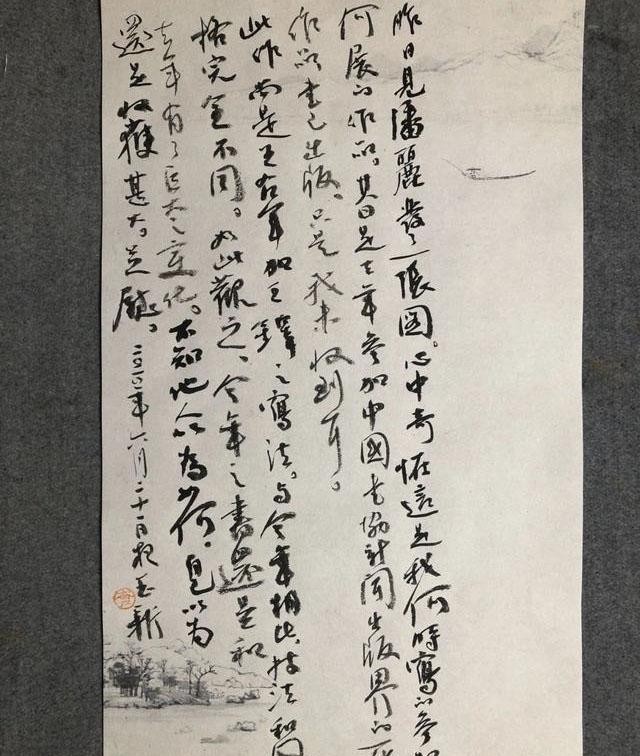 昨日見潘麗發了一張圖。心中奇怪這是我何時寫的參加
何展的作品。其曰是去年參加中國書協新聞出版界的
作品書已出版。只是我未收到耳。
此作尚是王右軍加王鐸之寫法。與今年相比技法和風
格完全不同。如此觀之、今年之書還是和
去年有了巨大之變化。不知他人以為如何。自以為
還是收獲甚大。足慰。二〇二〇年六月二十一日玉新